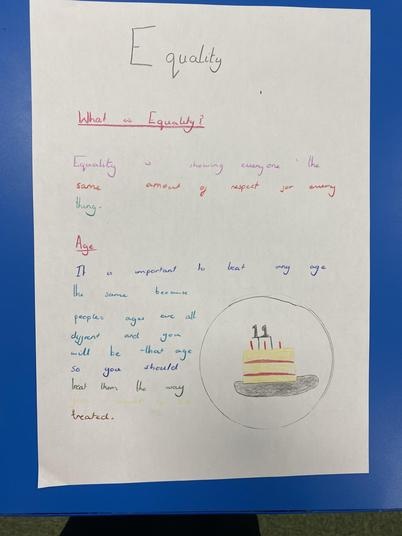 Equality
What is Equality?
Equality is showing everyone the
same amount of respect for every
thing.
Age
It is important to treat any age
the same because
peoples ages are all
diffrent and you
will be that age
so you should
treat them the way
treated.
11